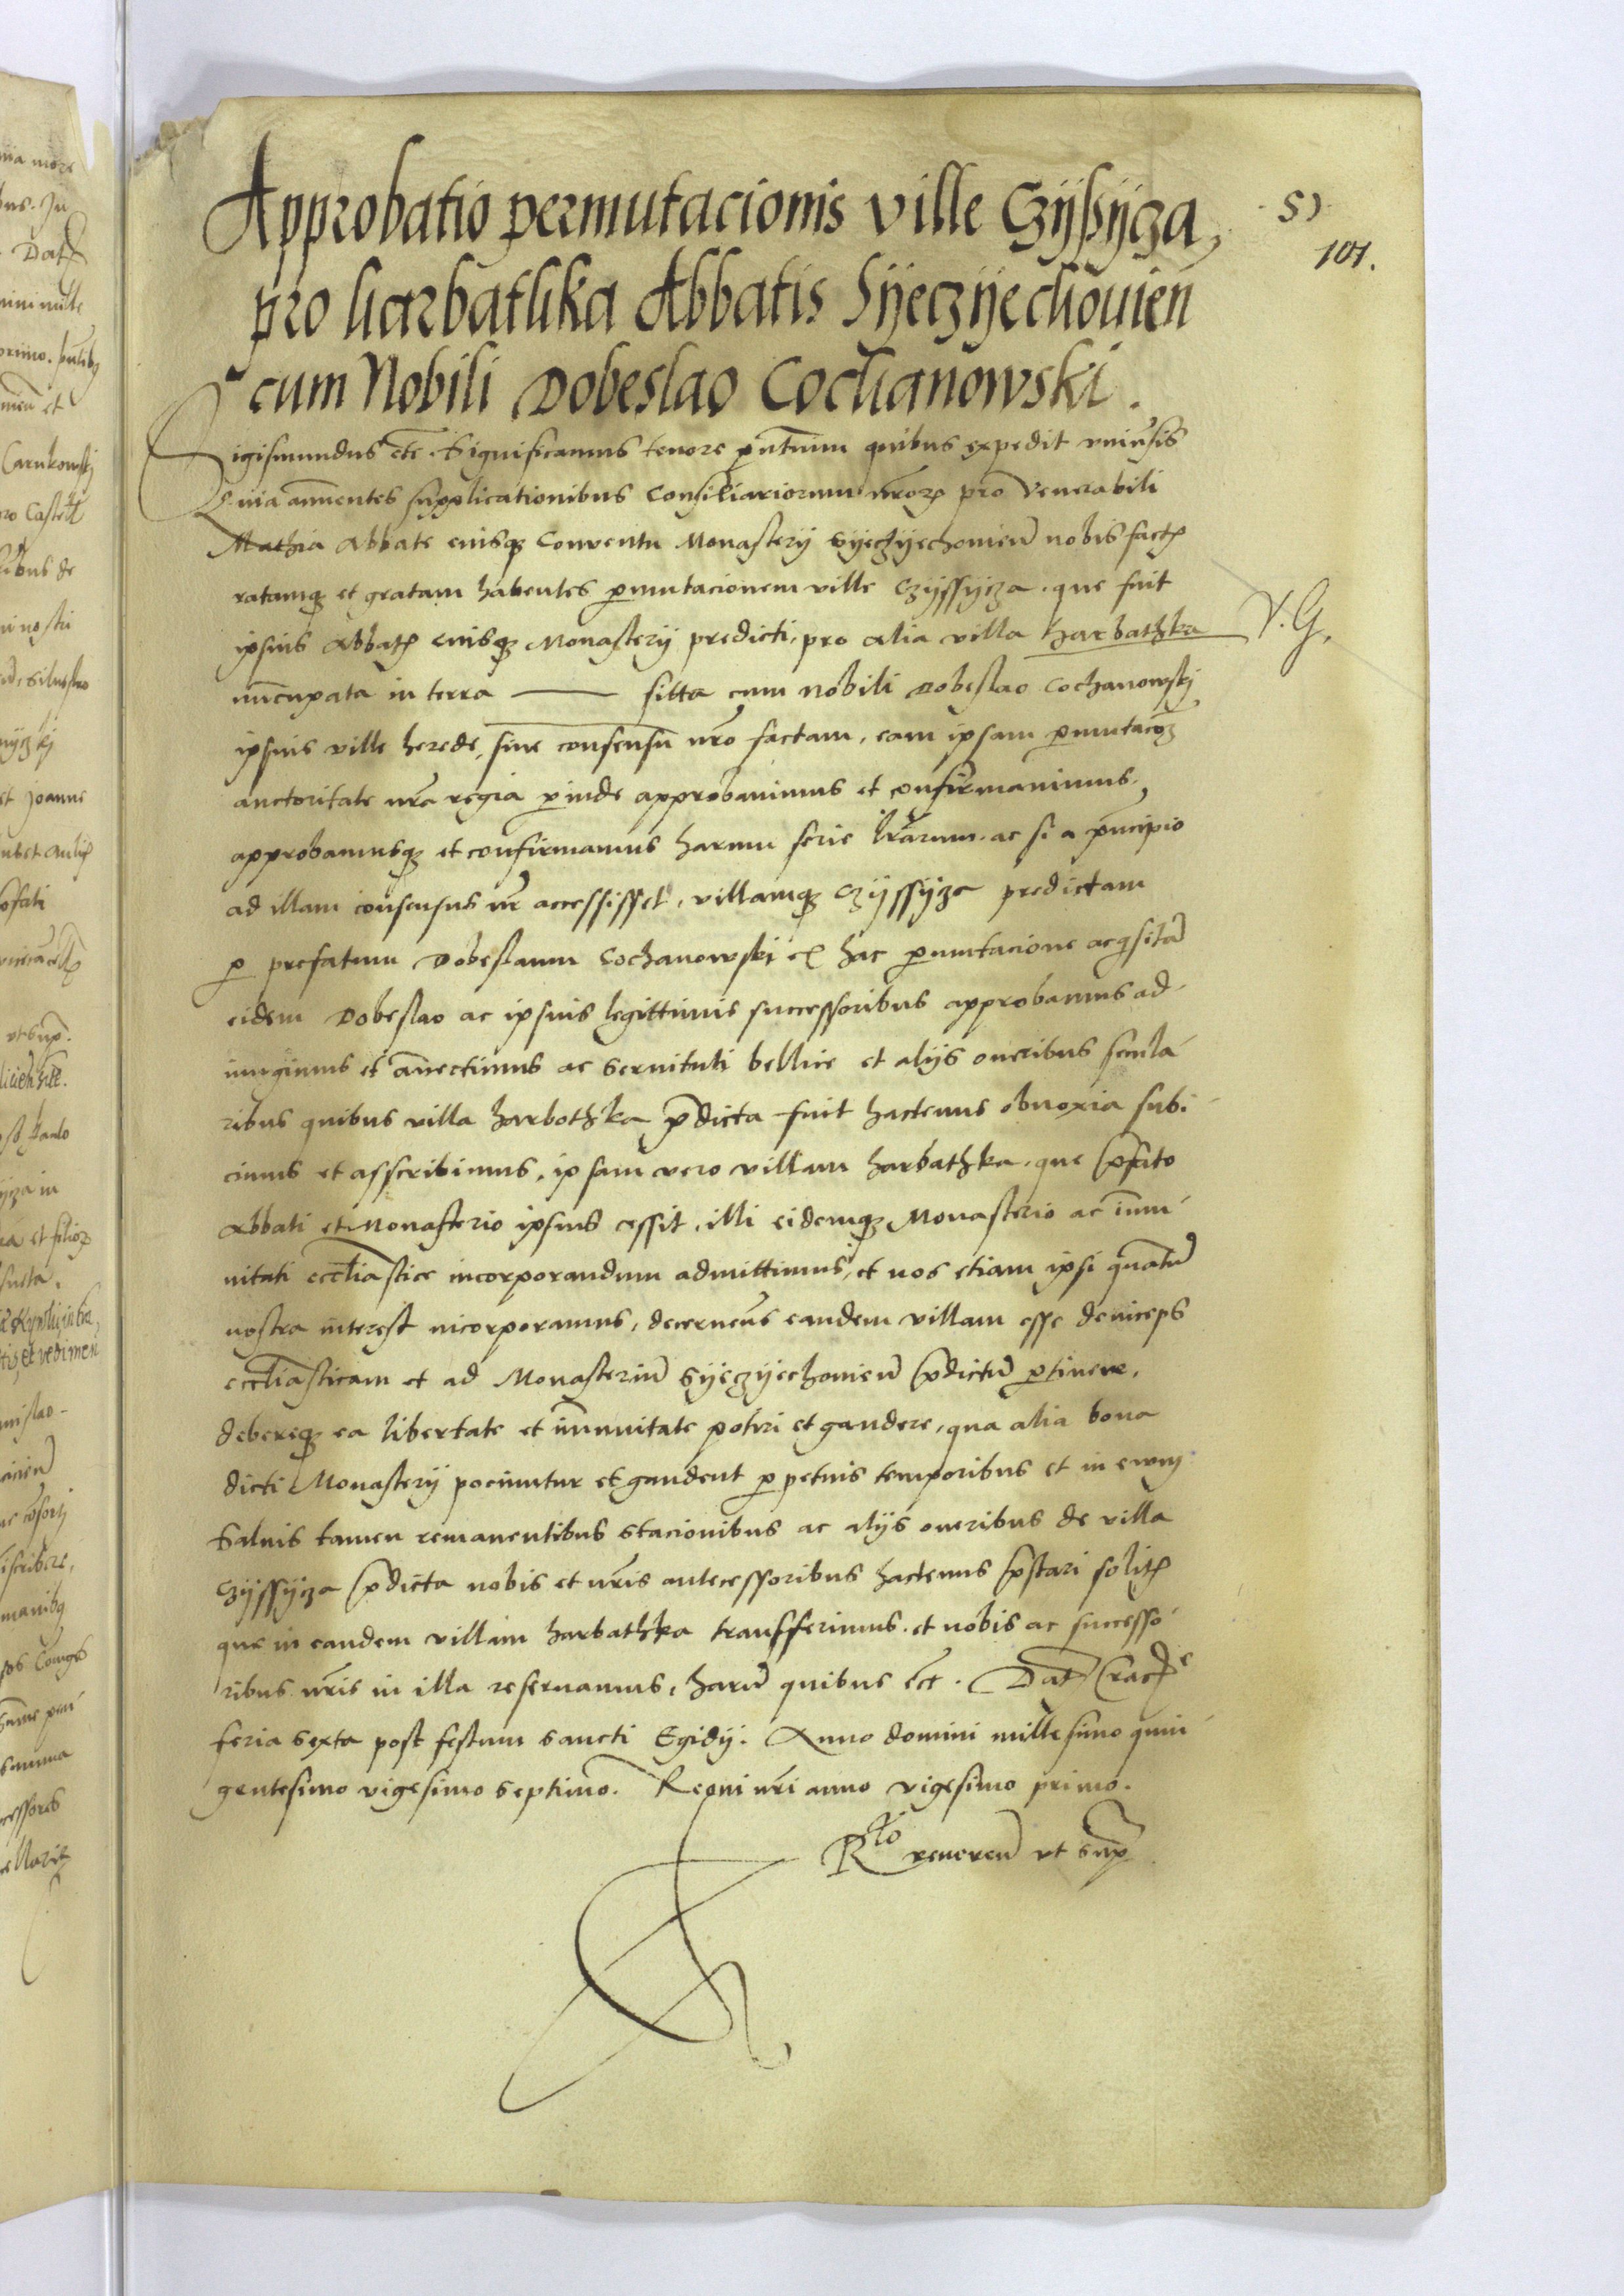 Approbatio permutacionis ville Czÿßÿcza,
pro harbathka Abbatis Sÿeczÿechouien
cum Nobili Dobeslao Cochanowski.
51
101.
Sigismundus etc. Significamus tenore pñtium quibus expedit vniuersis
Quia annuentes supplicationibus Consiliariorum nror pro Venerabili
Mathia Abbate eiusq Conuentu Monasterij Syeczÿechouien nobis fact
ratamq et gratam habentes pmutacionem ville Czÿssÿcza. que fuit
ipsius Abbat eiusq Monasterij predicti, pro alia villa harbathka
V. G.
nuncupata in terra —— sitta cum nobili Dobeslao Cochanowskj
ipsius ville herede, sine consensu nro factam, eam ipsam pmutacoez
auctoritate nra regia pinde approbauimus et confirmauimus,
approbamusq et confirmamus harum serie lrarum. ac si a pncipio
ad illam consensus nr accessisset, villamq Czÿssÿza predictam
p prefatum Dobeslaum Cochanowski ex hac pmutacione acqsitam
eidem Dobeslao ac ipsius legittimis successoribus approbamus ad-
iungimus et annectimus ac seruituti bellice et alijs oneribus secula-
ribus quibus villa harbothka pdicta fuit hactenus obnoxia subi-
cimus et asscribimus, ipsam vero villam harbathka. que pfato
Abbati et Monasterio ipsius cessit, illi eidemq Monasterio ac immu-
nitati eccliastice incorporandum admittimus, et nos etiam ipsi quatum
nostra interest incorporamus, decernens eandem villam esse deinceps
eccliasticam et ad Monasterium Syeczÿechouien pdictum ptinere,
debereq ea libertate et immunitate potiri et gaudere, qua alia bona
dicti Monasterij pociuntur et gaudent ppetuis temporibus et in ewm
Saluis tamen remanentibus stacionibus ac alijs oneribus de villa
Czÿssÿcza pdicta nobis et nris antecessoribus hactenus pstari solit
que in eandem villam harbathka transferimus. et nobis ac successo-
ribus nris in illa reseruamus, harum quibus etc. Dat Crac
feria sexta post festum sancti Egidij. Anno domini millesimo quin-
gentesimo vigesimo septimo. Regni nri anno vigesimo primo.
Rto reueren vt sup